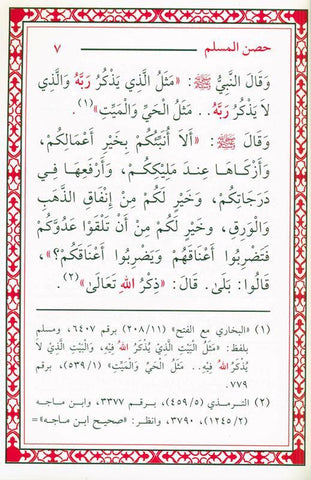 حصن المسلم ٧
وَقَالَ النَّبِيُّ ﷺ: «مَثَلُ الَّذِي يَذْكُرُ رَبَّهُ وَالَّذِي
لَا يَذْكُرُ رَبَّهُ.. مَثَلُ الْحَيِّ وَالْمَيِّتِ»(١).
وَقَالَ ﷺ: «أَلَا أُنَبِّئُكُمْ بِخَيْرِ أَعْمَالِكُمْ،
وَأَزْكَاهَا عِنْدَ مَلِيكِكُمْ، وَأَرْفَعِهَا فِي
دَرَجَاتِكُمْ، وَخَيْرٍ لَكُمْ مِنْ إِنْفَاقِ الذَّهَبِ
وَالْوَرِقِ، وَخَيْرٍ لَكُمْ مِنْ أَنْ تَلْقَوْا عَدُوَّكُمْ
فَتَضْرِبُوا أَعْنَاقَهُمْ وَيَضْرِبُوا أَعْنَاقَكُمْ؟»،
قَالُوا: بَلَىٰ. قَالَ: «ذِكْرُ اللهِ تَعَالَىٰ»(٢).
(١) «البخاري مع الفتح» (٢٠٨/١١) برقم ٦٤٠٧، ومسلم
بلفظ: «مَثَلُ الْبَيْتِ الَّذِي يُذْكَرُ اللهُ فِيْهِ، وَالْبَيْتِ الَّذِيْ لَا
يُذْكَرُ اللهُ فِيْهِ.. مَثَلُ الْحَيِّ وَالْمَيِّتِ» (٥٣٩/١)، برقم
٧٧٩.
(٢) الترمذي (٤٥٩/٥)، برقم ٣٣٧٧، وابن ماجه
(١٢٤٥/٢)، ٣٧٩٠، وانظر: «صحيح ابن ماجه»=